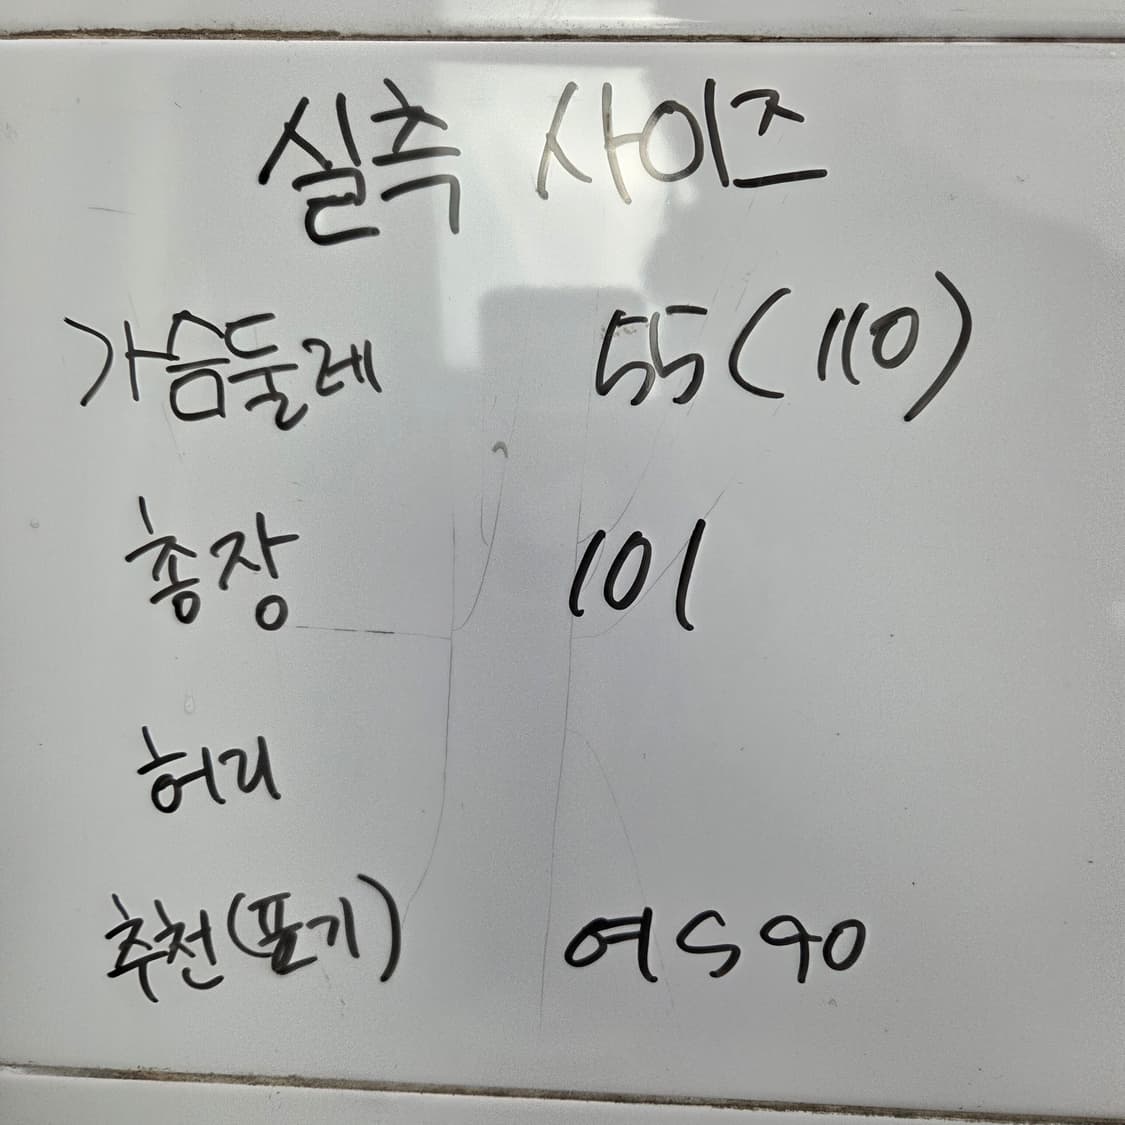 실측 사이즈
가슴둘레 55(110)
총장 101
허리
추천(표기) 여 S 90